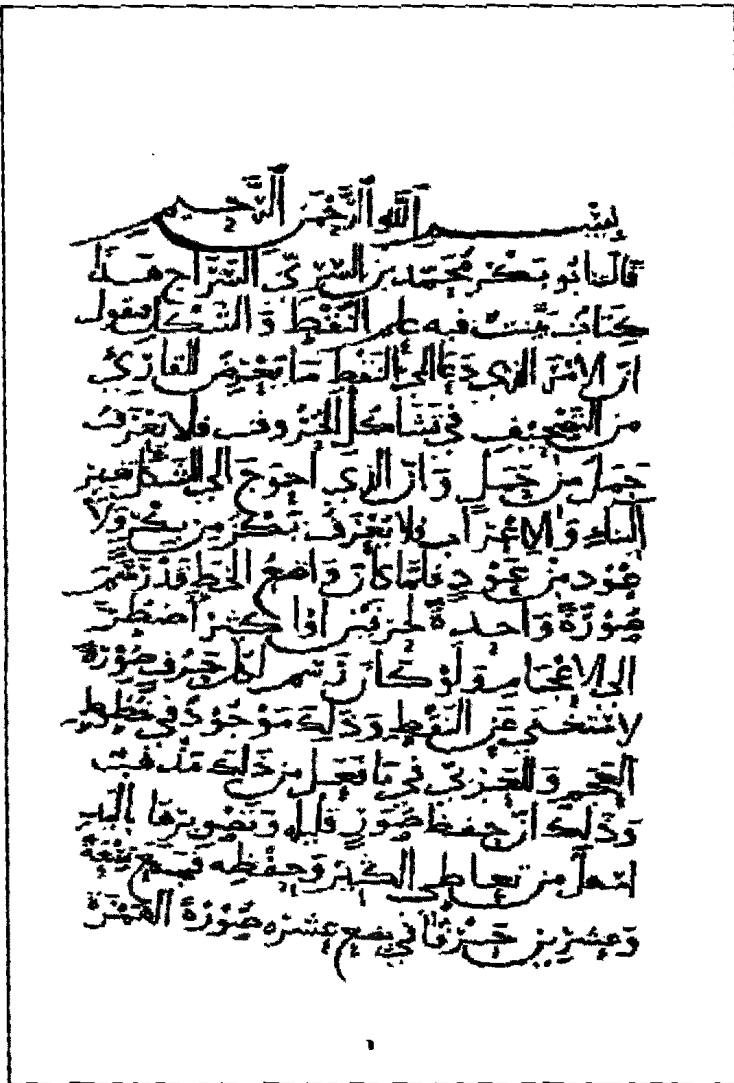 بسم الله الرحمن الرحيم
قال ابو بكر محمد بن السري السراج هذا
كتاب بينت فيه علم النقط والشكل فنقول
ان الامر الذي دعا الى النقط ما يعرض للقارئ
من التصحيف في تشاكل الحروف فلا يعرف
جمل من حمل وان الذي احوج الى الشكل
البناء والاعراب فلا يعرف بكر من بكر ولا
من فلما كان واضع الخط قدر
صورة واحدة لحرفين او اكثر اضطر
الى الاعجام ولو كان لكل حرف صورة
لا ستغنى عن النقط وذلك موجود في خطوط
العجم وللعربي في ما فعل من ذلك مذهب
وذلك ان حفظ صور قليله وتصويرها باليد
اسهل من تعاطي الكثير وحفظه فجمع تسعة
وعشرين حرفا في بضع عشره صورة الهمزة
١